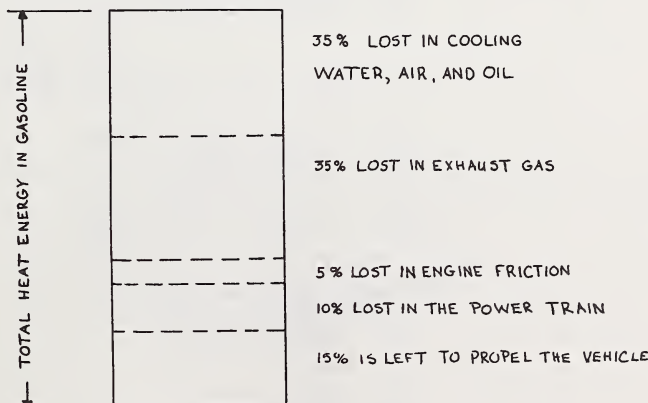 TOTAL HEAT ENERGY IN GASOLINE
35% LOST IN COOLING
WATER, AIR, AND OIL
35% LOST IN EXHAUST GAS
5% LOST IN ENGINE FRICTION
10% LOST IN THE POWER TRAIN
15% IS LEFT TO PROPEL THE VEHICLE